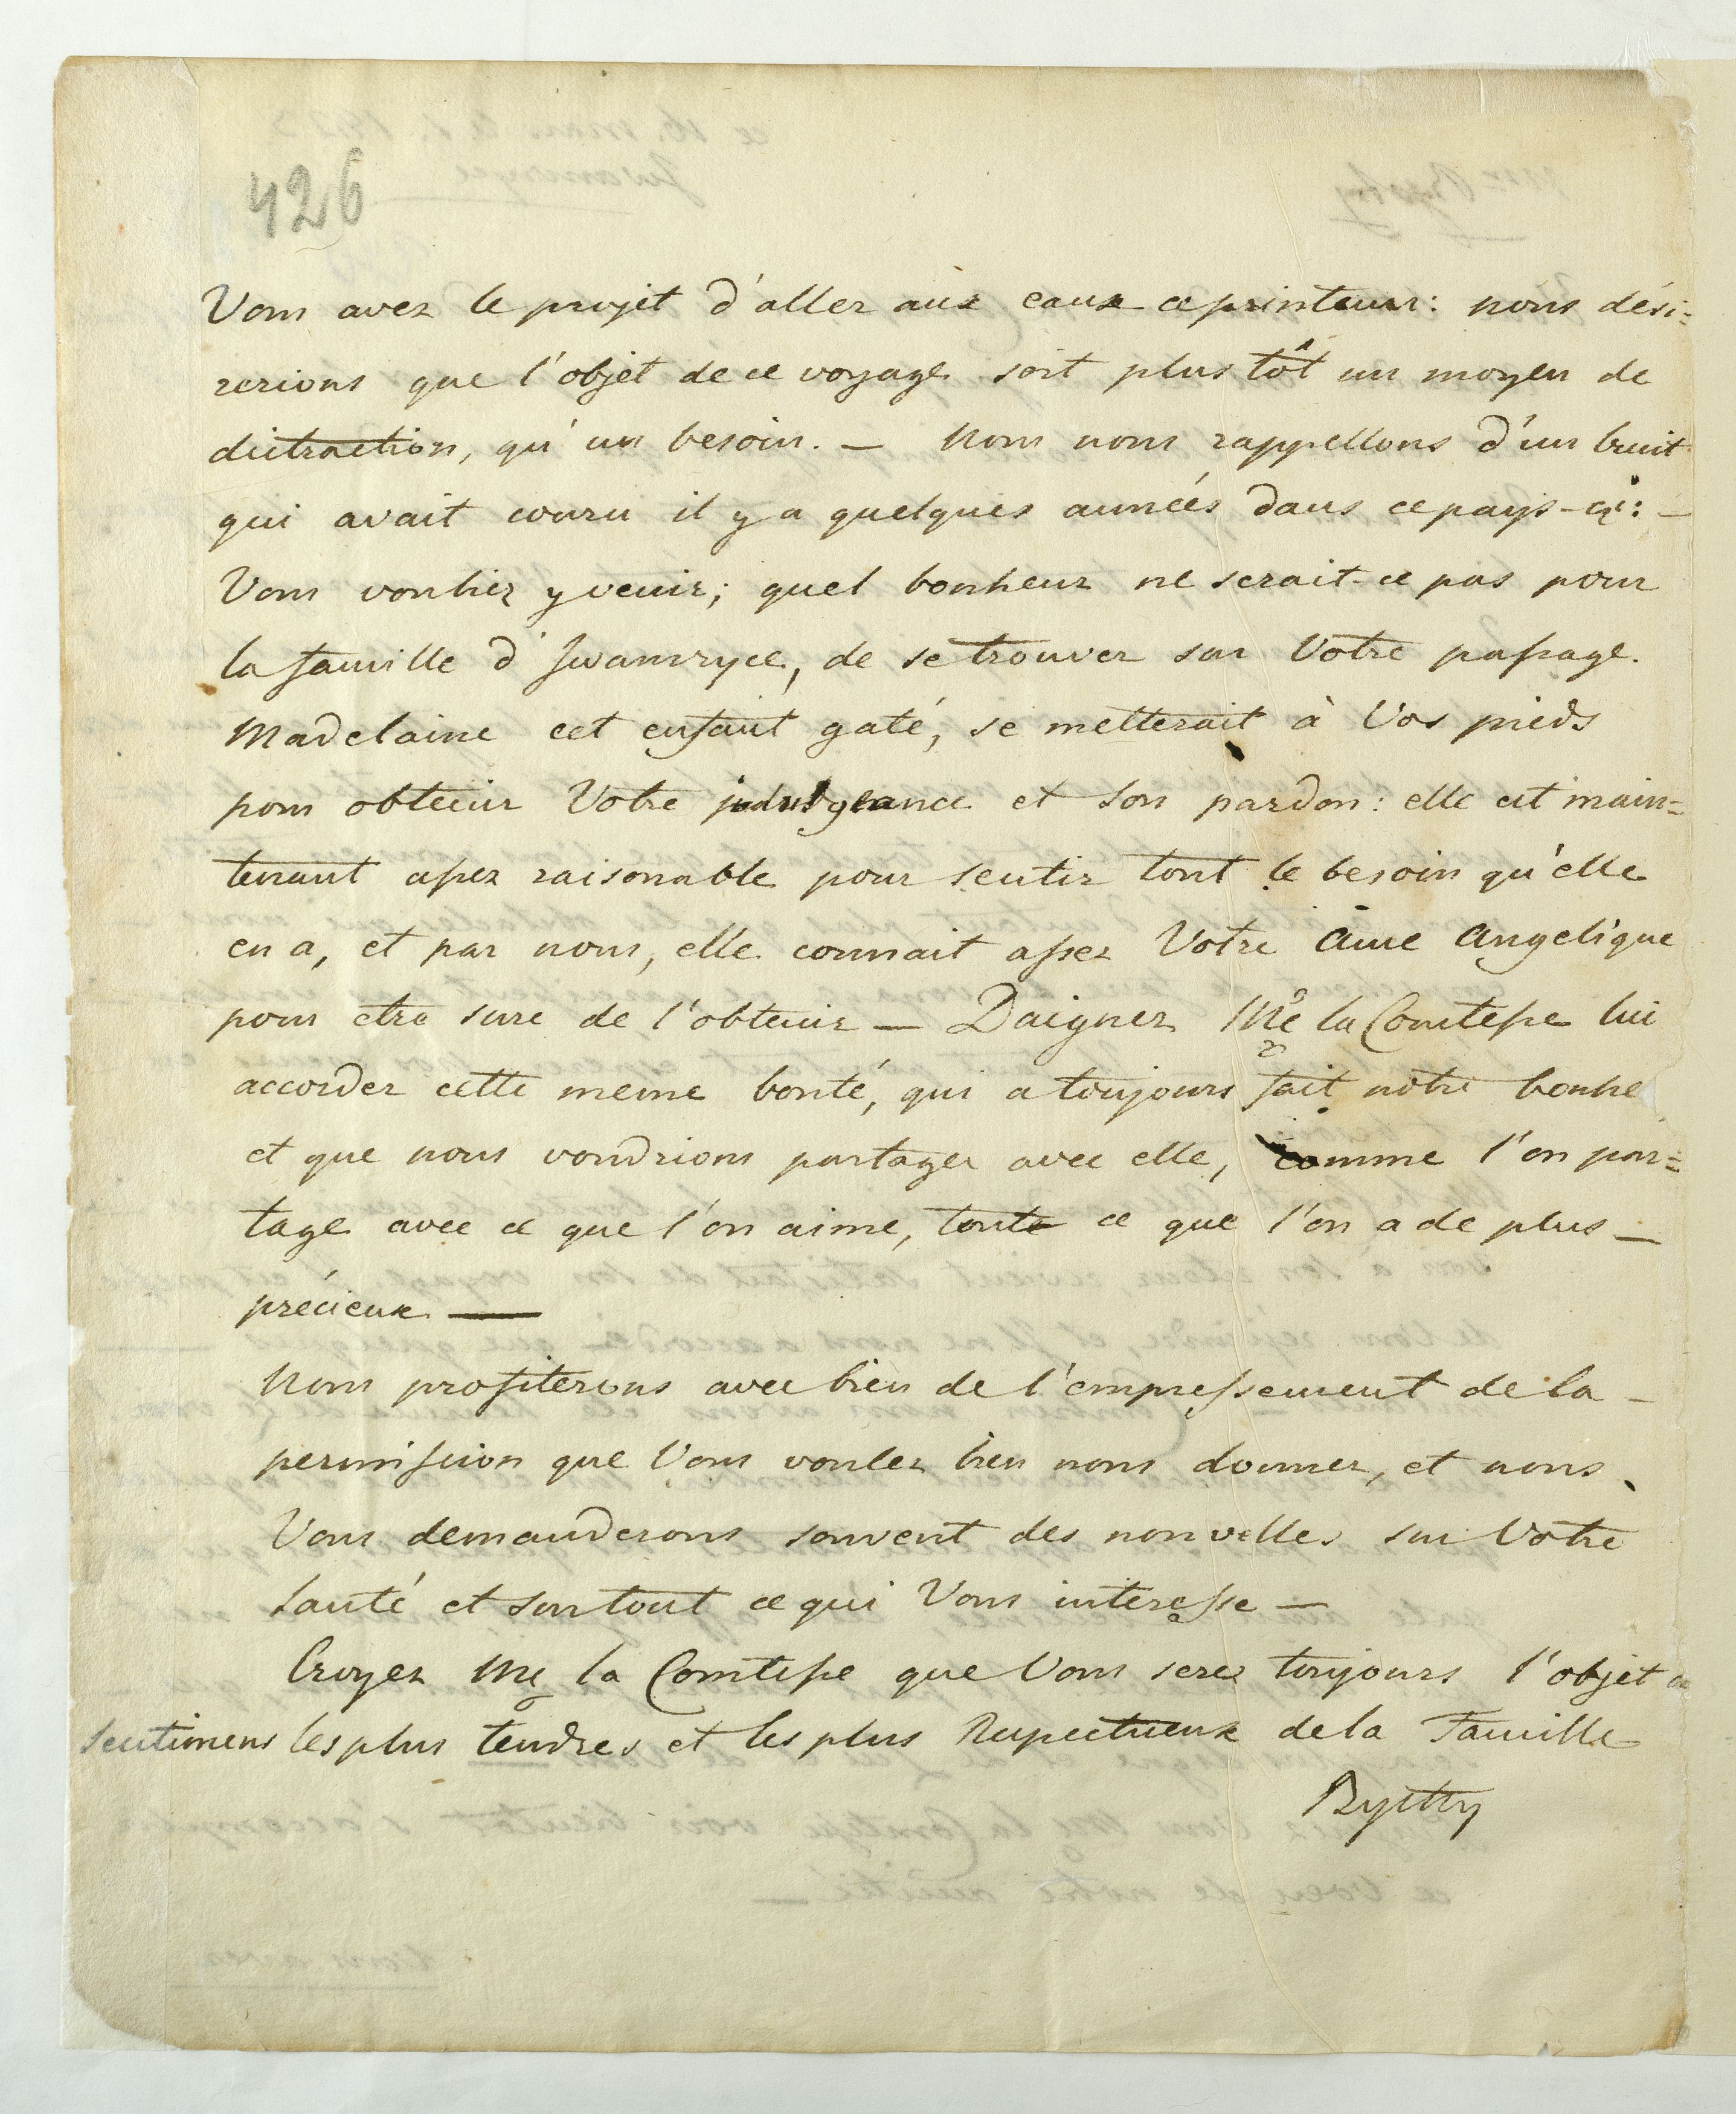 426
Vous avez le projet d'aller aux eaux ce printems: nous dési=
rerions que l'objet de ce voyage soit plus tôt un moyen de
distraction, qu'un besoin. — Nous nous rappellons d'un bruit
qui avait couru il y a quelques années dans ce pays-ci: —
Vous vouliez y venir; quel bonheur ne serait-ce pas pour
la famille d'Iwamryce, de se trouver sur Votre passage.
Madelaine cet enfant gaté, se metterait à Vos pieds
pour obtenir Votre indulgeance et son pardon: elle est main=
tenant assez raisonable pour sentir tout le besoin qu'elle
en a, et par nous, elle connait assez Votre âme angelique
pour etre sure de l'obtenir — Daignez Me la Comtesse lui
accorder cette meme bonté, qui a toujours fait notre bonhe
et que nous voudrions partager avec elle, comme l'on par=
tage avec ce que l'on aime, tout ce que l'on a de plus —
précieux —
Nous profiterons avec bien de l'empressement de la —
permission que Vous voulez bien nous donner, et nous
Vous demanderons souvent des nouvelles sur Votre
santé et surtout ce qui Vous interesse —
Croyez Me la Comtesse que Vous serez toujours l'objet de
sentimens les plus tendres et les plus Respectueux de la Famille